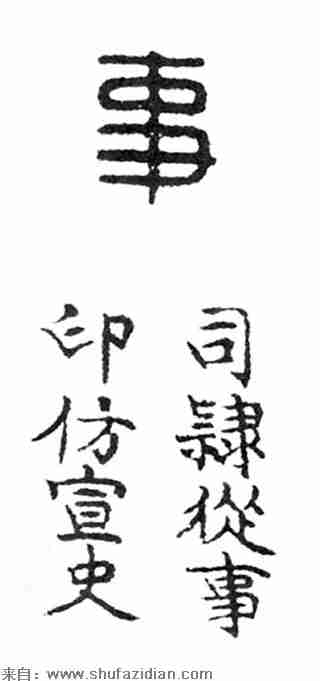 事
司隸從事
印仿宣史
来自：www.shufazidian.com